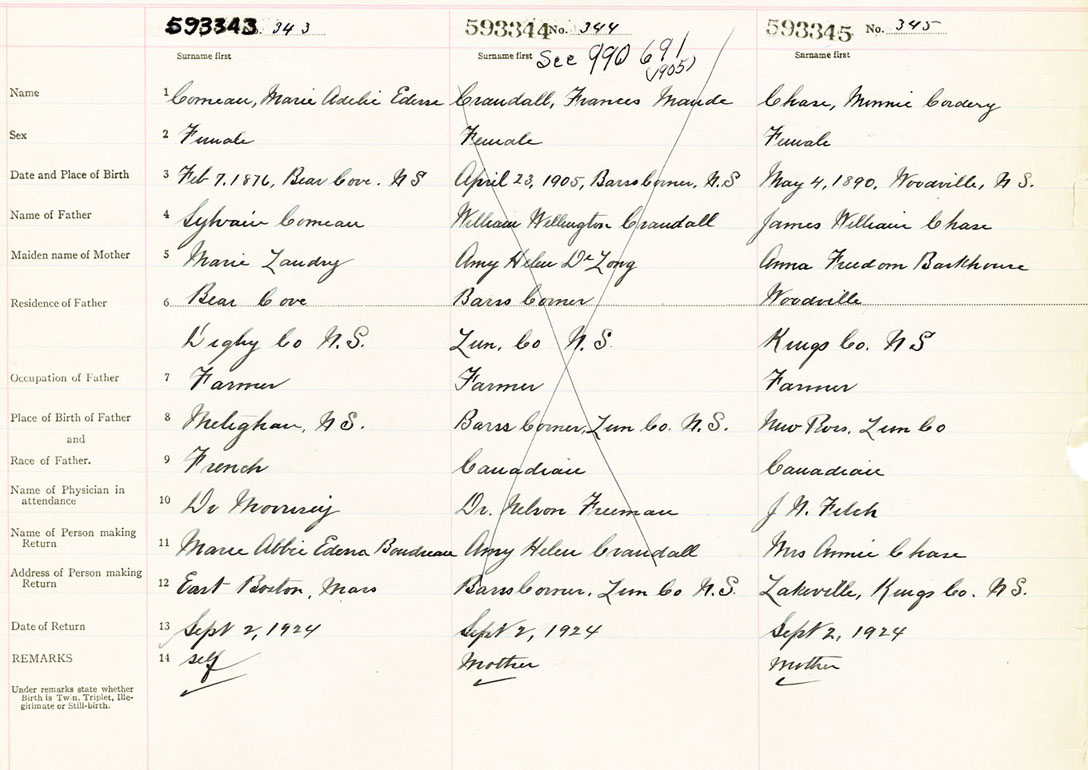 593343 No. 343 593344 No. 344 593345 No. 345
Surname first Surname first See 990 691 Surname first
(1905)
Name 1 Comeau, Marie Adelie Edesse Crandall, Frances Maude Chase, Minnie Cordery
Sex 2 Female Female Female
Date and Place of Birth 3 Feb 7, 1876, Bear Cove. N S April 23, 1905, Barss Corner, N.S May 4, 1890, Woodville, N S.
Name of Father 4 Sylvain Comeau William Wellington Crandall James William Chase
Maiden name of Mother 5 Marie Landry Amy Helen DeLong Anna Freedom Barkhouse
Residence of Father 6 Bear Cove Barss Corner Woodville
Digby Co N.S. Lun. Co N.S. Kings Co. N S
Occupation of Father 7 Farmer Farmer Farmer
Place of Birth of Father 8 Meteghan, N S. Barss Corner, Lun Co. N.S. New Ross, Lun Co
and
Race of Father. 9 French Canadian Canadian
Name of Physician in
attendance 10 Dr Morrisey Dr. Nelson Freeman J N. Fitch
Name of Person making
Return 11 Marie Abbie Edessa Boudreau Amy Helen Crandall Mrs Annie Chase
Address of Person making
Return 12 East Boston, Mass Barss Corner, Lun Co N.S. Lakeville, Kings Co. N S.
Date of Return 13 Sept 2, 1924 Sept 2, 1924 Sept 2, 1924
REMARKS 14 self Mother Mother
Under remarks state whether
Birth is Twin, Triplet, Ille-
gitimate or Still-birth.